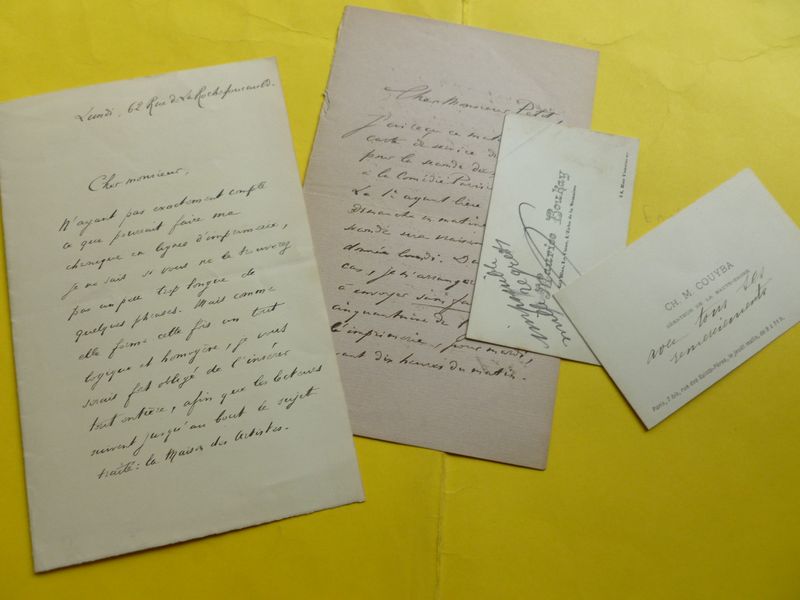 Lundi, 62 Rue de La Rochefoucauld.
Cher monsieur,
N'ayant pas exactement compté
ce que pouvait faire ma
chronique en lignes d'imprimerie,
je ne sais si vous ne la trouverez
pas un petit trop longue de
quelques phrases. Mais comme
elle forme cette fois un tout
logique et homogène, je vous
serais fort obligé de l'insérer
tout entière, afin que les lecteurs
suivent jusqu'au bout le sujet
traité: la Maison des Artistes.
Cher Monsieur Petit,
J'ai reçu ce mat
carte de service d
pour la seconde du
à la Comédie Paris
La 1e ayant lieu
dimanche en matiné
seconde sera
donnée lundi. Da
cas, je m'arrange
à envoyer sans fa
cinquantaine de
l'imprimerie, pour mardi
vant dix heures du matin.
Maurice Boukay
impossible
regrets
CH. M. COUYBA
SÉNATEUR DE LA HAUTE-SAÔNE
avec tous ses
remerciements
Paris, 7 bis, rue des Saints-Pères, le jeudi matin, de 9 à 11 h.